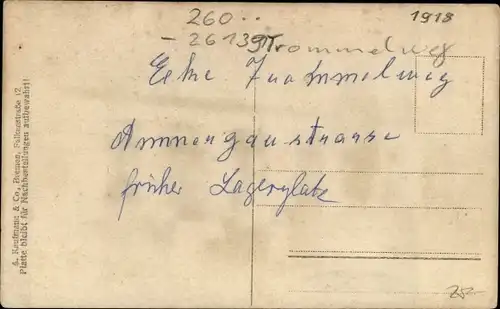 260..
1918
- 26139 Trommelweg
Ecke Trommelweg
Ammergaustrasse
früher Lagerplatz
28.-
A. Kaufmann & Co., Bremen, Palmenstraße 12
Platte bleibt für Nachbestellungen aufbewahrt!